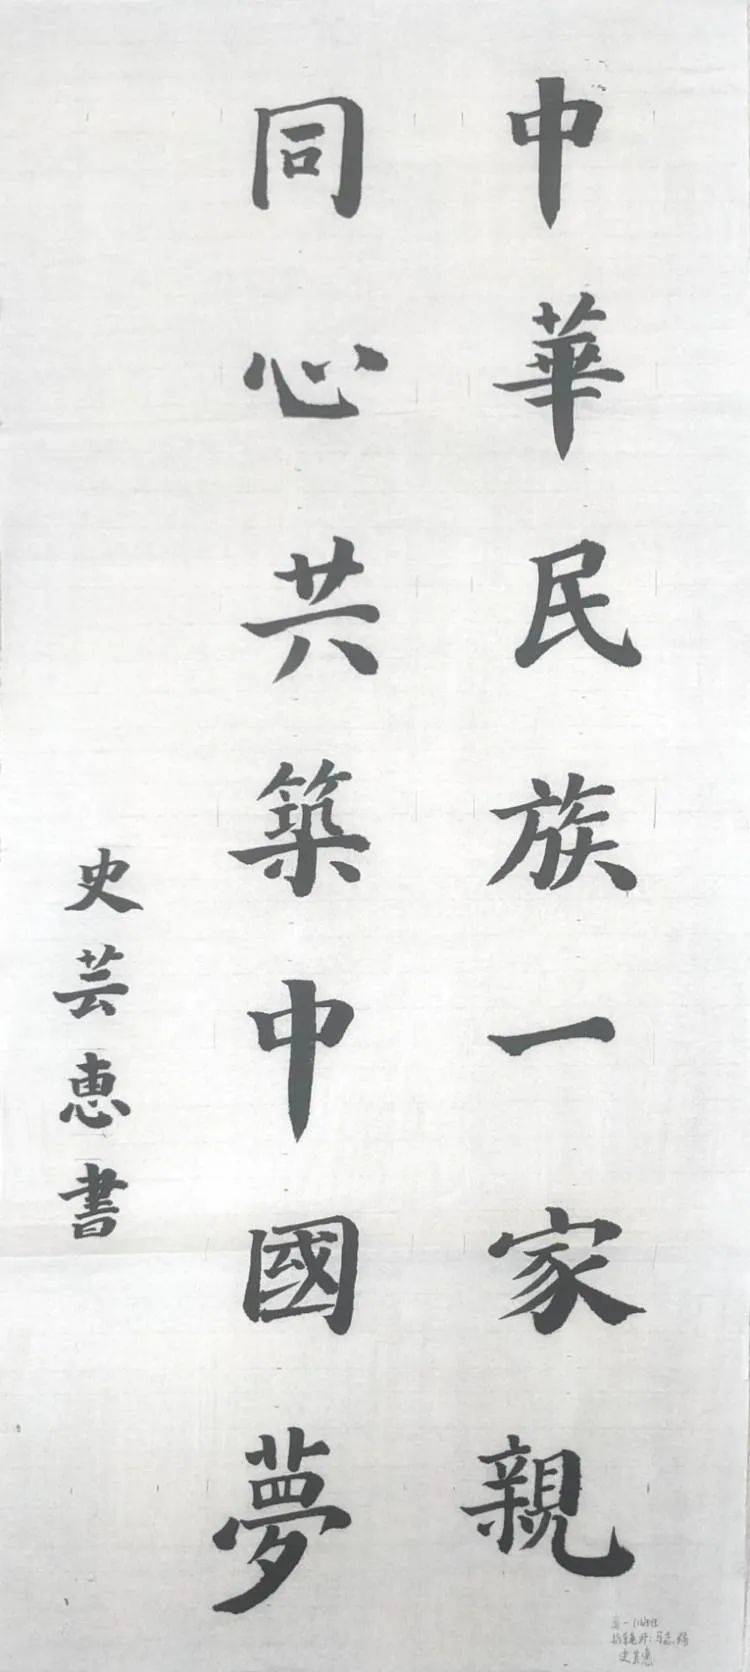 中華民族一家親
同心共築中國夢
史芸惠書
史芸惠